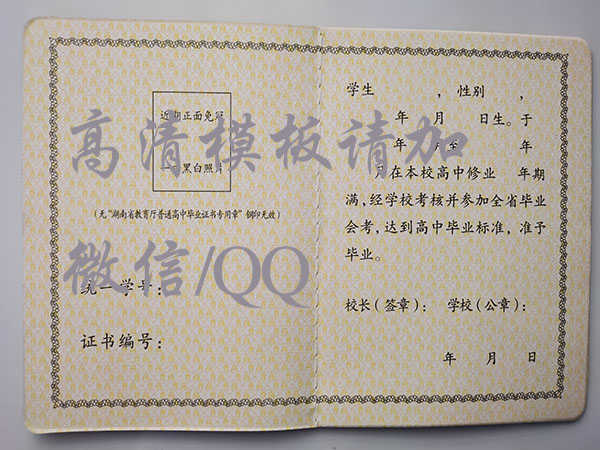 近期正面免冠
黑白照片
(无“湖南省教育厅普通高中毕业证书专用章”钢印无效)
统一学号:
证书编号:
学生 , 性别 ,
年 月 日生。于
年 月至 年
月在本校高中修业 年期
满, 经学校考核并参加全省毕业
会考, 达到高中毕业标准, 准予
毕业。
校长(签章): 学校(公章):
年 月 日
高清模板请加
微信/QQ